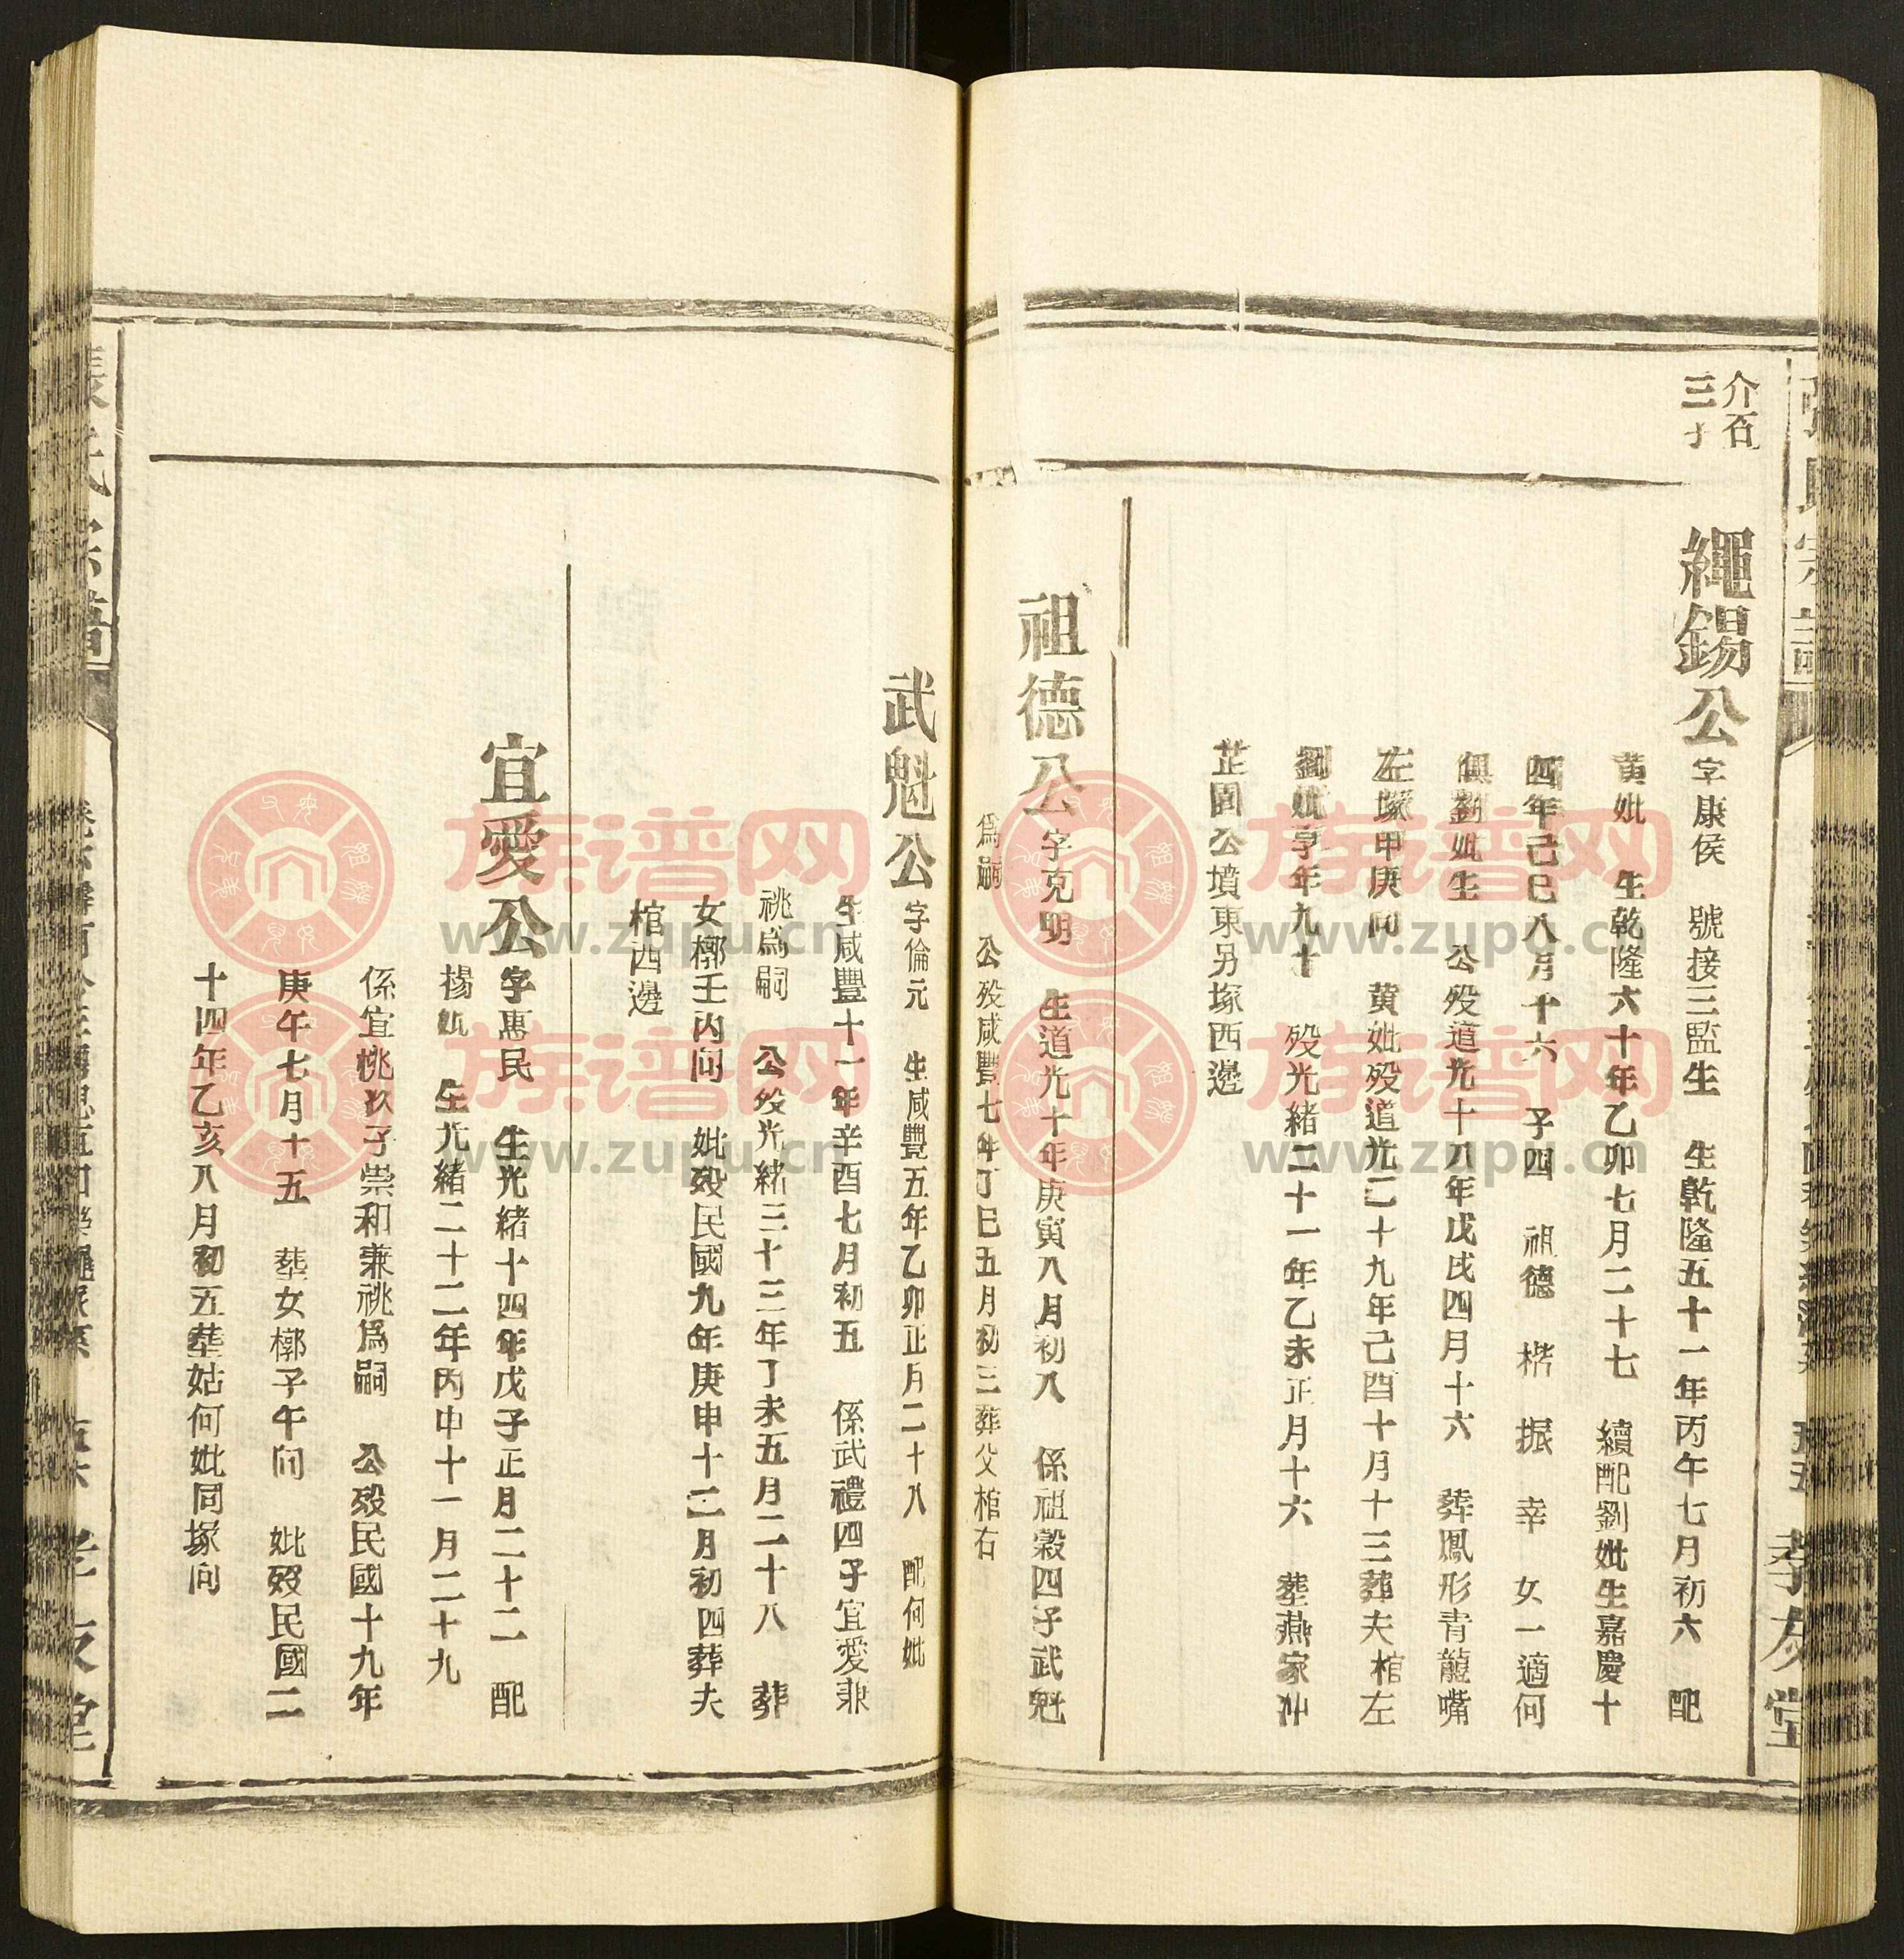 介石
三子
繩錫公字康侯 號接三監生 生乾隆五十一年丙午七月初六 配
黃妣 生乾隆六十年乙卯七月二十七 續配劉妣生嘉慶十
四年己巳八月十六 子四 祖德 楷 振 幸 女一適何
俱劉妣生 公歿道光十八年戊戌四月十六 葬鳳形青龍嘴
左塚甲庚向 黃妣歿道光二十九年己酉十月十三葬夫棺左
劉妣享年九十 歿光緒二十一年乙未正月十六 塟燕家冲
芷園公墳東另塚西邊
祖德公字克明 生道光十年庚寅八月初八 係祖穀四子武魁
爲嗣 公歿咸豐七年丁巳五月初三葬父棺右
武魁公字倫元 生咸豐五年乙卯正月二十八 配何妣
生咸豐十一年辛酉七月初五 係武禮四子宜愛兼
祧爲嗣 公歿光緒三十三年丁未五月二十八 葬
女槨壬丙向 妣歿民國九年庚申十二月初四葬夫
棺西邊
宜愛公字惠民 生光緒十四年戊子正月二十二 配
楊妣 生光緒二十二年丙申十一月二十九
係宜桃玖子崇和兼祧爲嗣 公歿民國十九年
庚午七月十五 塟女槨子午向 妣歿民國二
十四年乙亥八月初五塟姑何妣同塚向
張氏宗譜
孝友堂
族谱网
www.zupu.cn
族谱网
www.zupu.cn
族谱网
www.zupu.cn
族谱网
www.zupu.cn